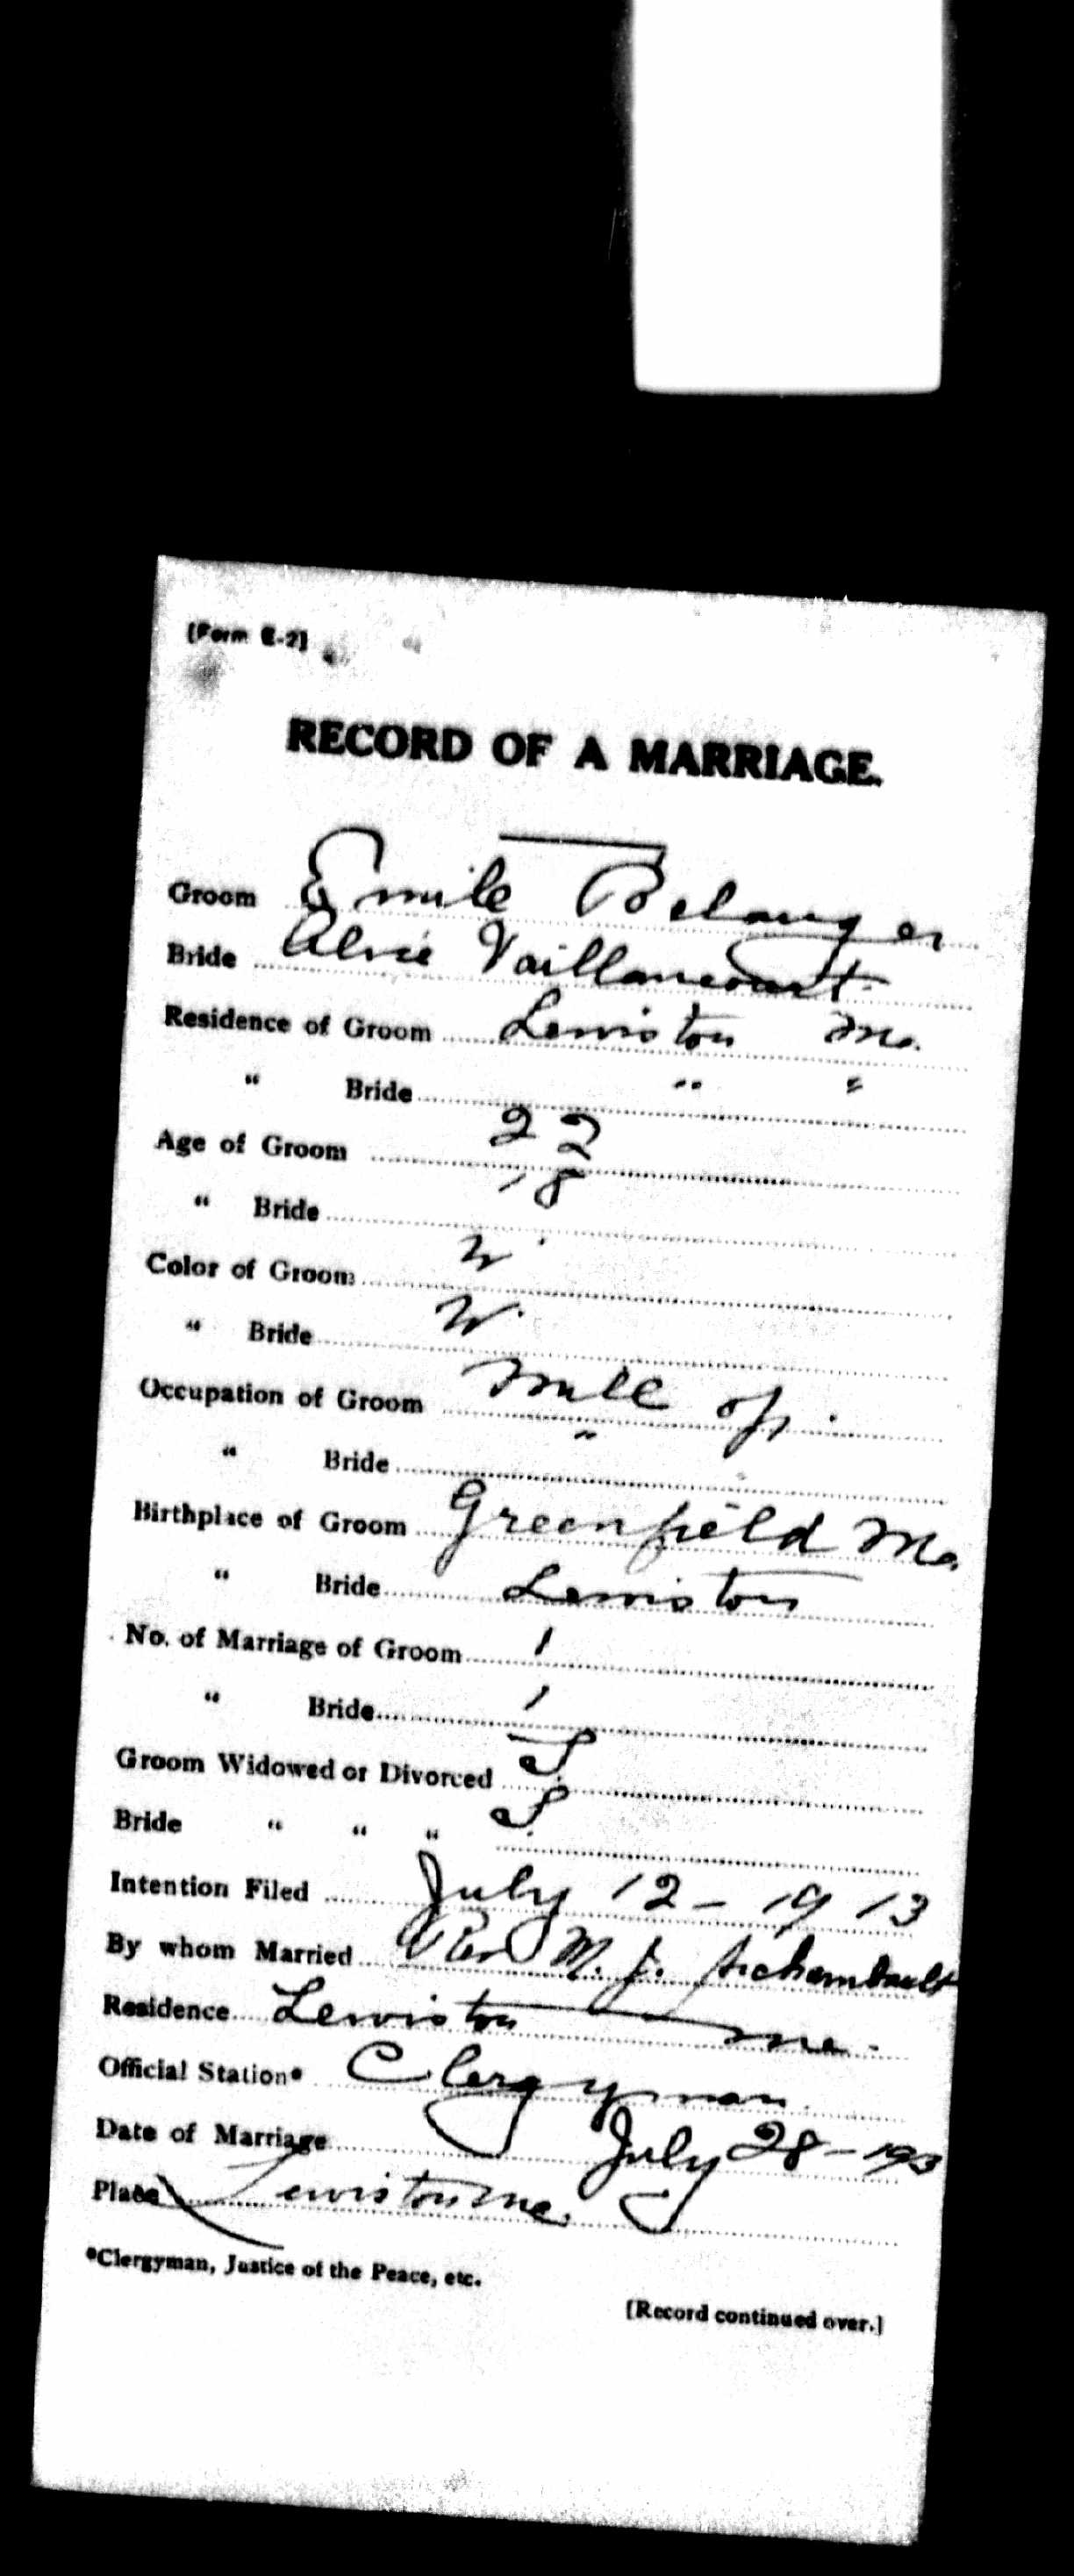 [Form E-2]
RECORD OF A MARRIAGE.
Groom Emile Belanger
Bride Alvié Vaillancourt
Residence of Groom Lewiston Me.
" Bride " "
Age of Groom 22
" Bride 18
Color of Groom W
" Bride W.
Occupation of Groom Mill op.
" Bride "
Birthplace of Groom Greenfield Me.
" Bride Lewiston
No. of Marriage of Groom 1
" Bride 1
Groom Widowed or Divorced S
Bride " " " S
Intention Filed July 12 - 1913
By whom Married Rev M. J. Archambault
Residence Lewiston Me.
Official Station* Clergyman
Date of Marriage July 28 - 193
Place Lewiston Me.
*Clergyman, Justice of the Peace, etc.
[Record continued over.]